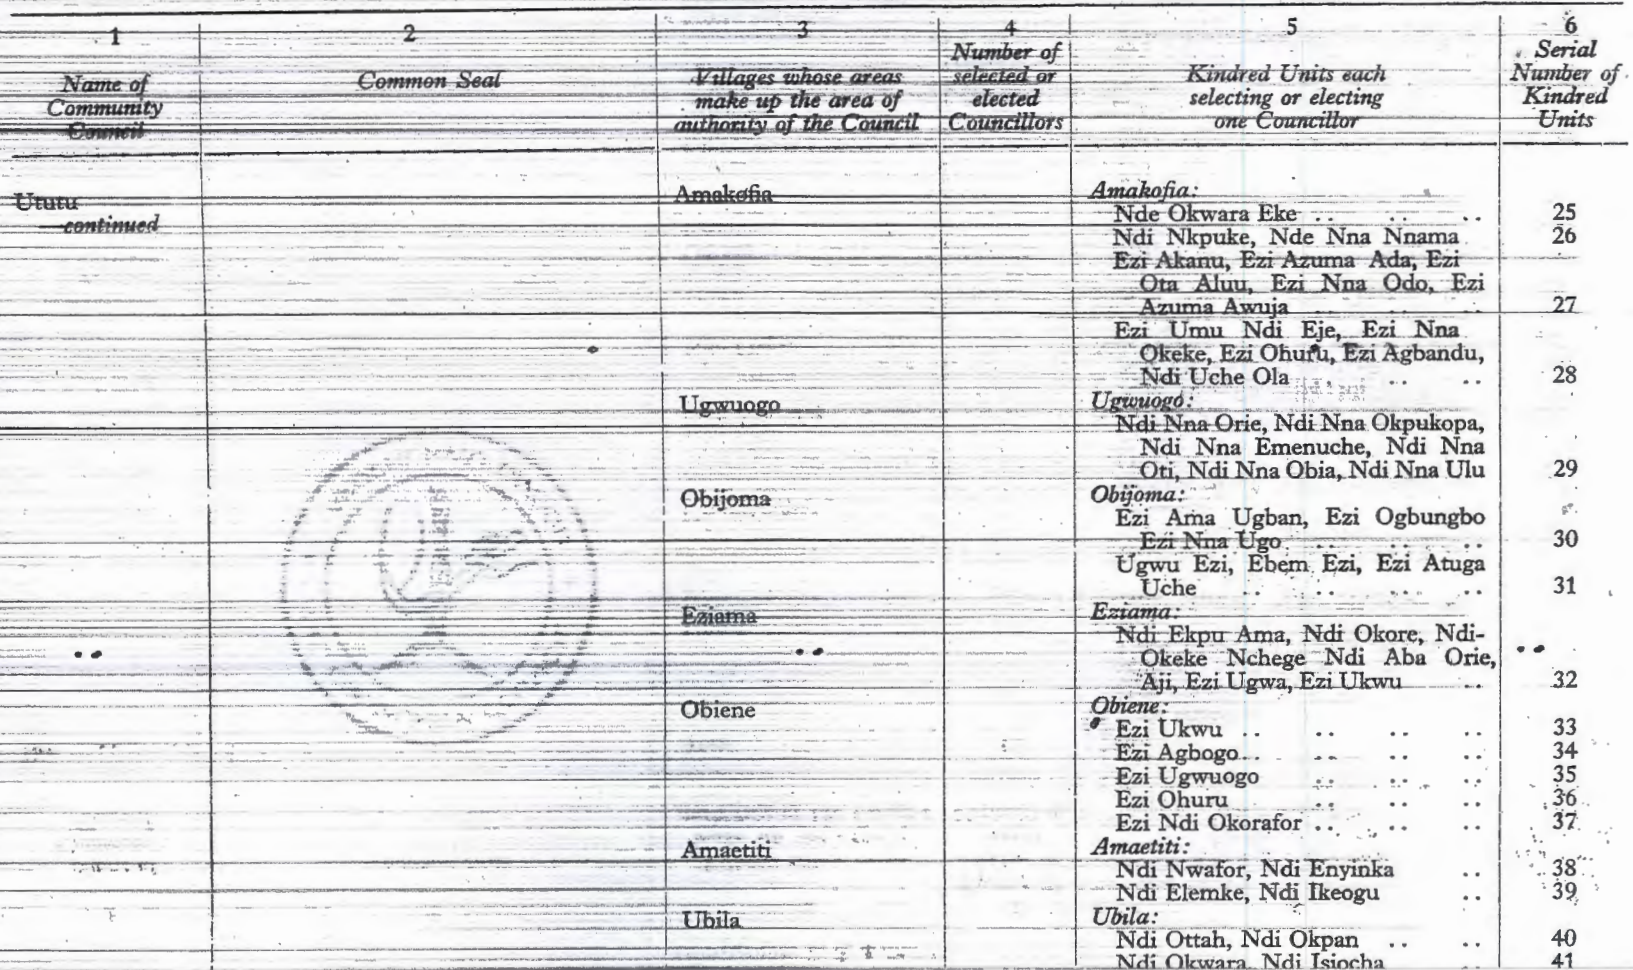 1 2 3 4 5 6
Name of Community Council
Common Seal
Villages whose areas make up the area of authority of the Council
Number of selected or elected Councillors
Kindred Units each selecting or electing one Councillor
Serial Number of Kindred Units
Ututu Amakofia Amakofia:
—continued Nde Okwara Eke .. .. .. 25
Ndi Nkpuke, Nde Nna Nnama 26
Ezi Akanu, Ezi Azuma Ada, Ezi
Ota Aluu, Ezi Nna Odo, Ezi
Azuma Awuja .. .. 27
Ezi Umu Ndi Eje, Ezi Nna
Okeke, Ezi Ohuru, Ezi Agbandu,
Ndi Uche Ola .. .. .. 28
Ugwuogo Ugwuogo:
Ndi Nna Orie, Ndi Nna Okpukopa,
Ndi Nna Emenuche, Ndi Nna
Oti, Ndi Nna Obia, Ndi Nna Ulu 29
Obijoma Obijoma:
Ezi Ama Ugban, Ezi Ogbungbo
Ezi Nna Ugo .. .. .. 30
Ugwu Ezi, Ebem Ezi, Ezi Atuga
Uche .. .. .. .. 31
Eziama Eziama:
Ndi Ekpu Ama, Ndi Okore, Ndi-
Okeke Nchege Ndi Aba Orie,
Aji, Ezi Ugwa, Ezi Ukwu .. 32
Obiene Obiene:
Ezi Ukwu .. .. .. .. 33
Ezi Agbogo .. .. .. .. 34
Ezi Ugwuogo .. .. .. 35
Ezi Ohuru .. .. .. 36
Ezi Ndi Okorafor .. .. .. 37
Amaetiti Amaetiti:
Ndi Nwafor, Ndi Enyinka .. 38
Ndi Elemke, Ndi Ikeogu .. 39
Ubila Ubila:
Ndi Ottah, Ndi Okpan .. .. 40
Ndi Okwara, Ndi Isiocha .. 41